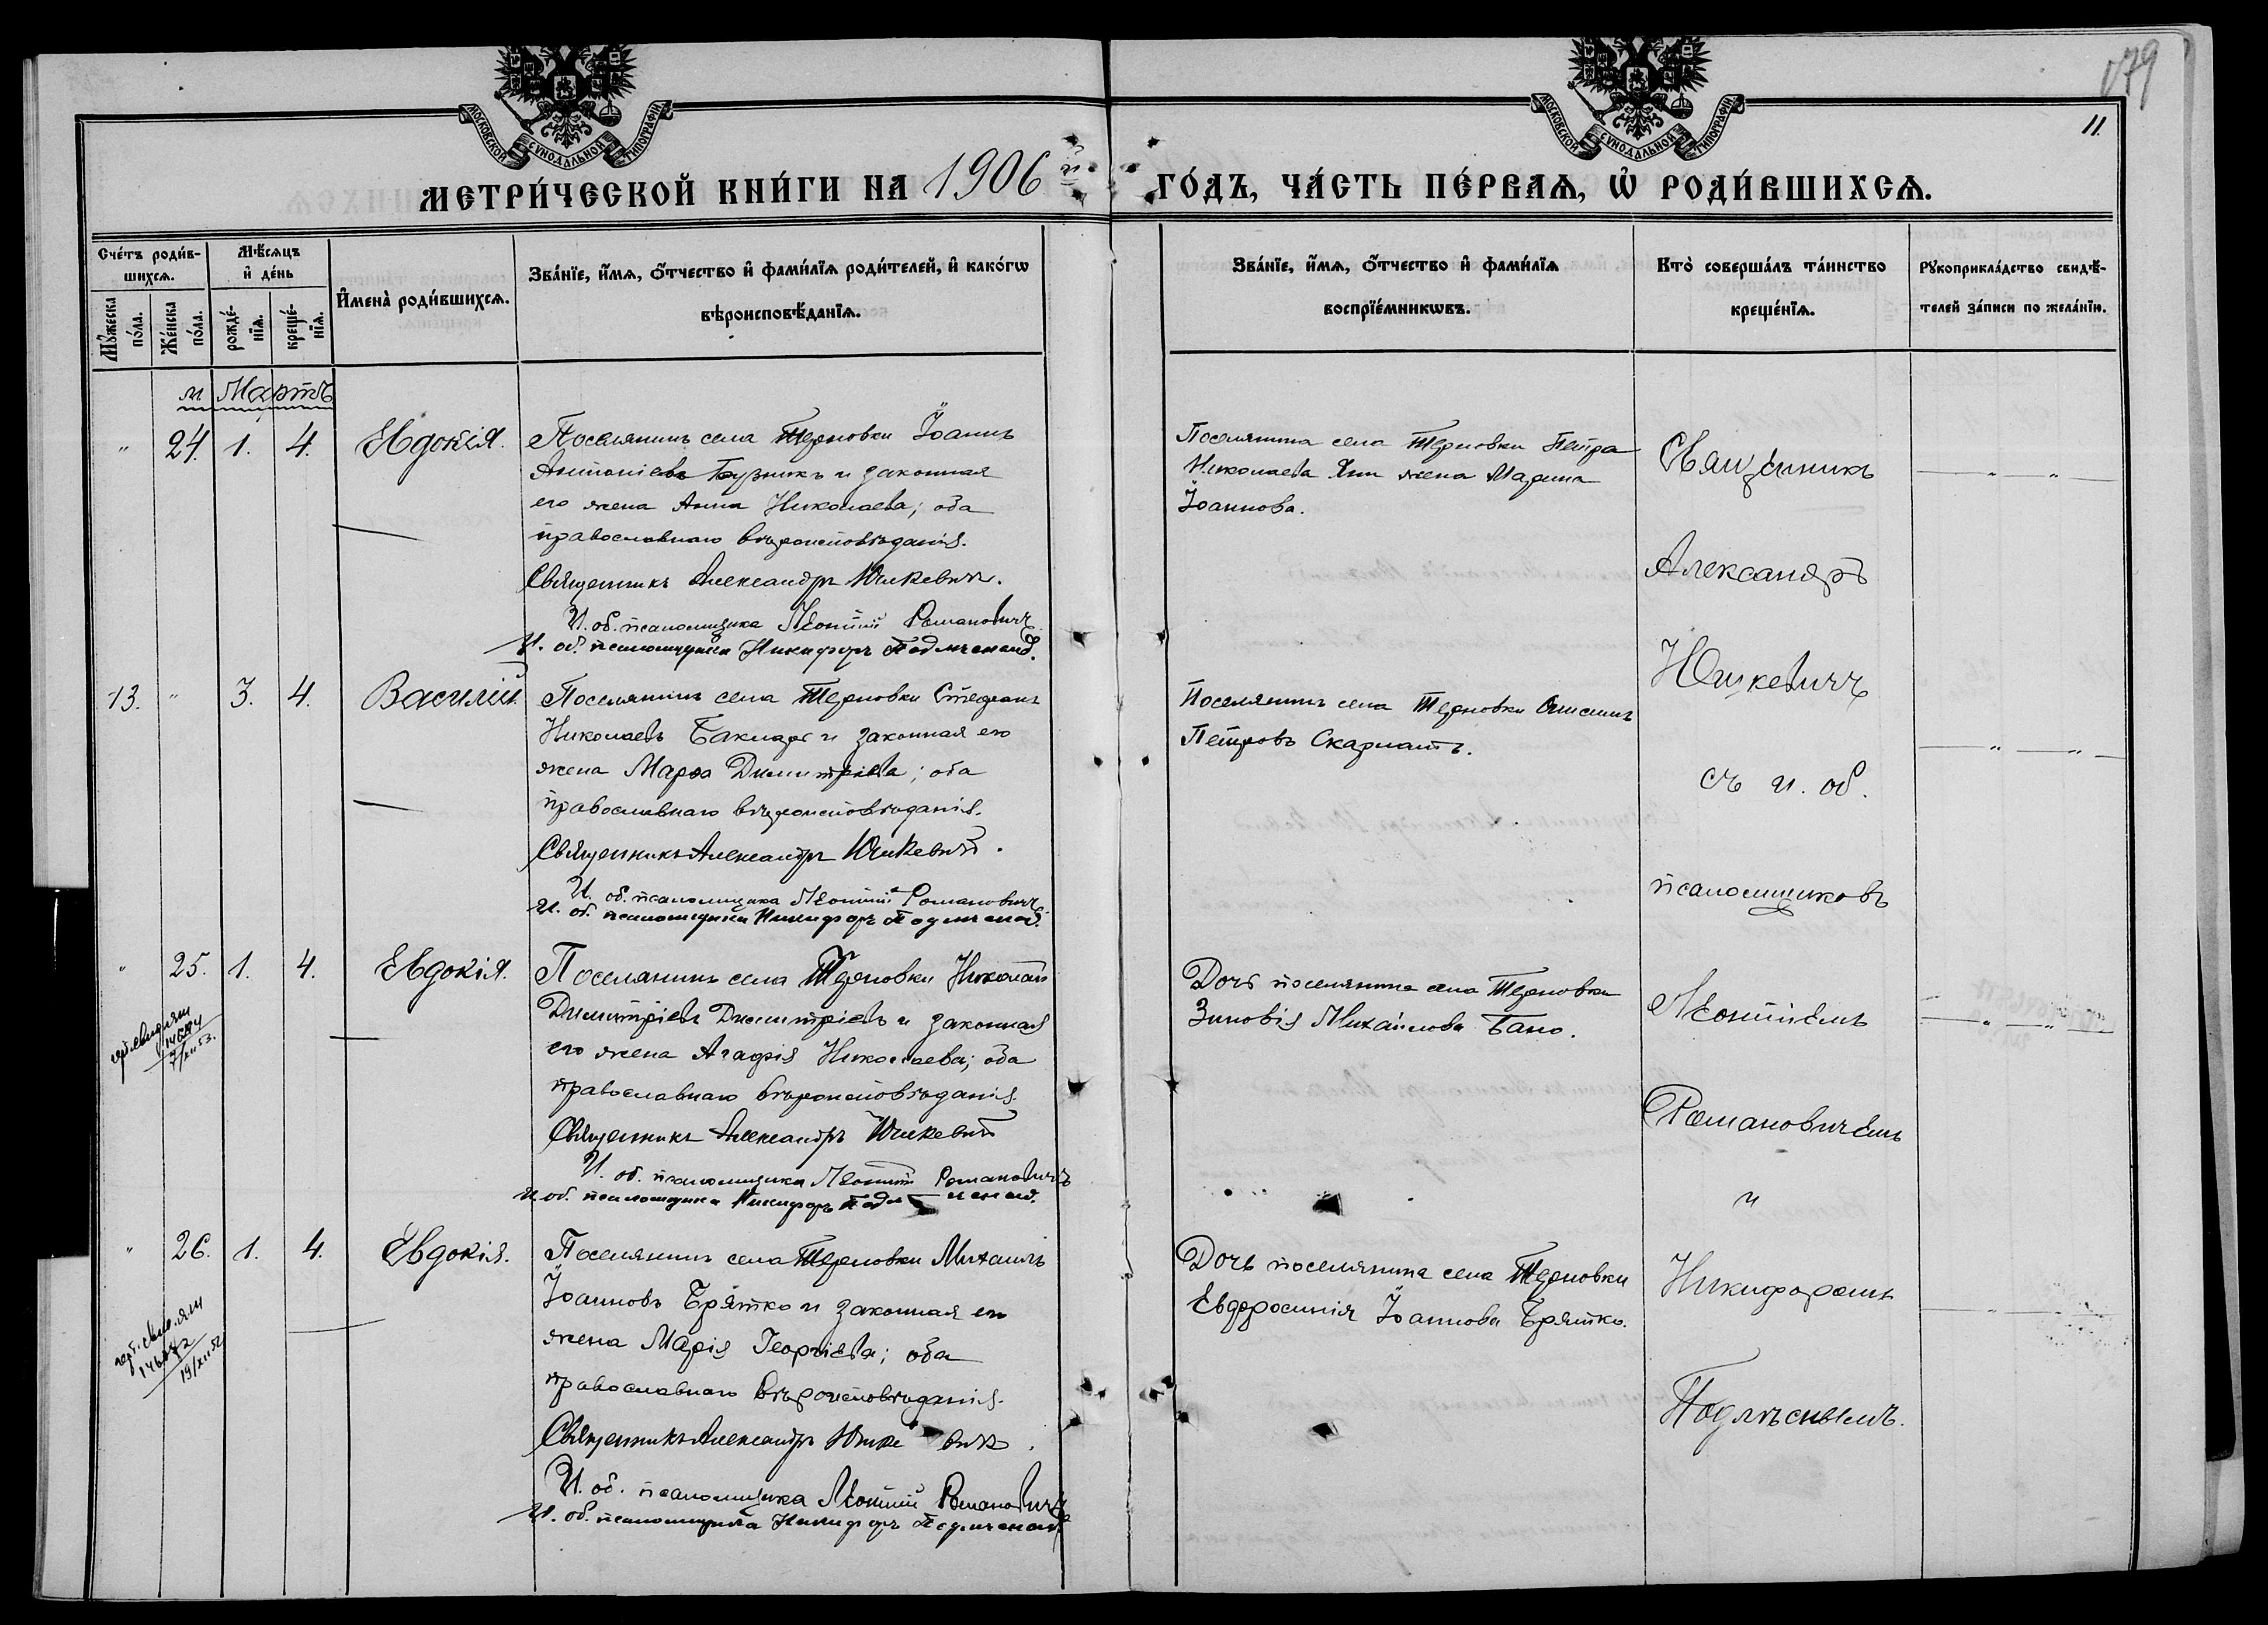 179
11.
МОСКОВСКОЙ СѴНОДАЛЬНОЙ ТИПОГРАФІИ
МОСКОВСКОЙ СѴНОДАЛЬНОЙ ТИПОГРАФІИ
МЕТРИ́ЧЕСКОЙ КНИ́ГИ НА 1906 й
ГО́ДЪ, ЧА́СТЬ ПЕ́РВАѦ, Ѡ҆ РОДИ́ВШИХСѦ.
Сче́тъ роди́в-
шихсѧ.
Мѣ́сѧцъ
и҆ де́нь
Мꙋ́жеска
по́ла.
Же́нска
по́ла.
рожде́-
нїѧ.
креще́-
нїѧ.
И҆мена̀ роди́вшихсѧ.
Зва́нїе, и҆́мѧ, ѻ҆́тчество и҆ фами́лїѧ роди́телей, и҆ како́гѡ
вѣроисповѣ́данїѧ.
Зва́нїе, и҆́мѧ, ѻ҆́тчество и҆ фами́лїѧ
воспрїе́мникѡвъ.
Кто̀ соверша́лъ та́инство
креще́нїѧ.
Рꙋкоприкла́дство свидѣ́-
телей за́писи по жела́нїю.
м Мартъ
" 24. 1. 4. Евдокія.
Поселянинъ села Терновки Іоаннъ
Антоніевъ Бузникъ и законная
его жена Анна Николаева; оба
православнаго вѣроисповѣданія.
Священникъ Александръ Юшкевичъ.
И. об. псаломщика Леонтій Романовичъ
И. об. псаломщика Никифоръ Подлѣсный.
Поселянина села Терновки Петра
Николаева жена Марина
Іоаннова.
13. " 3. 4. Василій.
Поселянинъ села Терновки Стефанъ
Николаевъ Бакларъ и законная его
жена Марѳа Димитріева; оба
православнаго вѣроисповѣданія.
Священникъ Александръ Юшкевичъ.
И. об. псаломщика Леонтій Романовичъ
И. об. псаломщика Никифоръ Подлѣсный.
Поселянинъ села Терновки
Петровъ Скарлатъ.
" 25. 1. 4. Евдокія.
Поселянинъ села Терновки Николай
Димитріевъ Димитріевъ и законная
его жена Агафія Николаева; оба
православнаго вѣроисповѣданія.
Священникъ Александръ Юшкевичъ
И. об. псаломщика Леонтій Романовичъ
И. об. псаломщика Никифоръ Подлѣсный.
7/XII 53.
Дочь поселянина села Терновки
Зиновія Михайлова Бано.
" 26. 1. 4. Евдокія.
Поселянинъ села Терновки Михаилъ
Іоанновъ Брятко и законная его
жена Марія Георгіева; оба
православнаго вѣроисповѣданія.
Священникъ Александръ Юшкевичъ.
И. об. псаломщика Леонтій Романовичъ
И. об. псаломщика Никифоръ Подлѣсный
19/XII 52
Дочь поселянина села Терновки
Евфросинія Іоаннова Брятко.
Священникъ
Александръ
Юшкевичъ
съ и. об.
псаломщиковъ
Леонтіемъ
Романовичемъ
и
Никифоромъ
Подлѣснымъ.